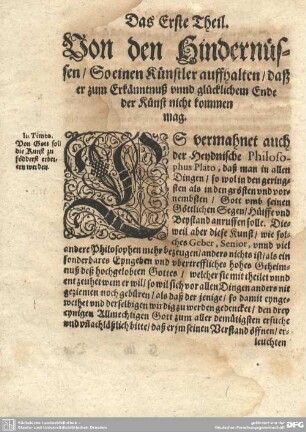 Das Erste Theil.
Von den Hindernüs-
sen / So einen Künstler auffhalten / daß
er zum Erkänntnuß vnnd glücklichem Ende
der Kunst nicht kommen
mag.
In Timeo.
Von Gott soll
die Kunst zu
förderst erbet-
ten werden.
ES vermahnet auch
der Heydnische Philoso-
phus Plato, daß man in allen
Dingen / so wol in den gering-
sten als in den grösten vnd vor-
nembsten / Gott vmb seinen
Göttlichen Segen / Hülffe vnd
Beystand anruffen solle. Die-
weil aber diese Kunst / wie sol-
ches Geber, Senior, vnnd viel
andere Philosophen mehr bezeugen / anders nichts ist / als ein
sonderbares Eyngeben vnd vbertreffliches hohes Geheim-
nuß deß hochgelobten Gottes / welcher sie mittheilet vnnd
entzeuhet wem er will / so wil sich vor allen Dingen anders nit
geziemen noch gebüren / als daß der jenige / so damit eynge-
weihet vnd derselbigen wirdig zu werden gedencket / den drey
eynigen Allmechtigen Gott zum aller demütigsten ersuche
vnd vnachläßlich bitte / daß er jm seinen Verstand öffnen / er-
leuchten
Sächsische Landesbibliothek -
Staats- und Universitätsbibliothek Dresden
gefördert von der
Deutschen Forschungsgemeinschaft
DFG